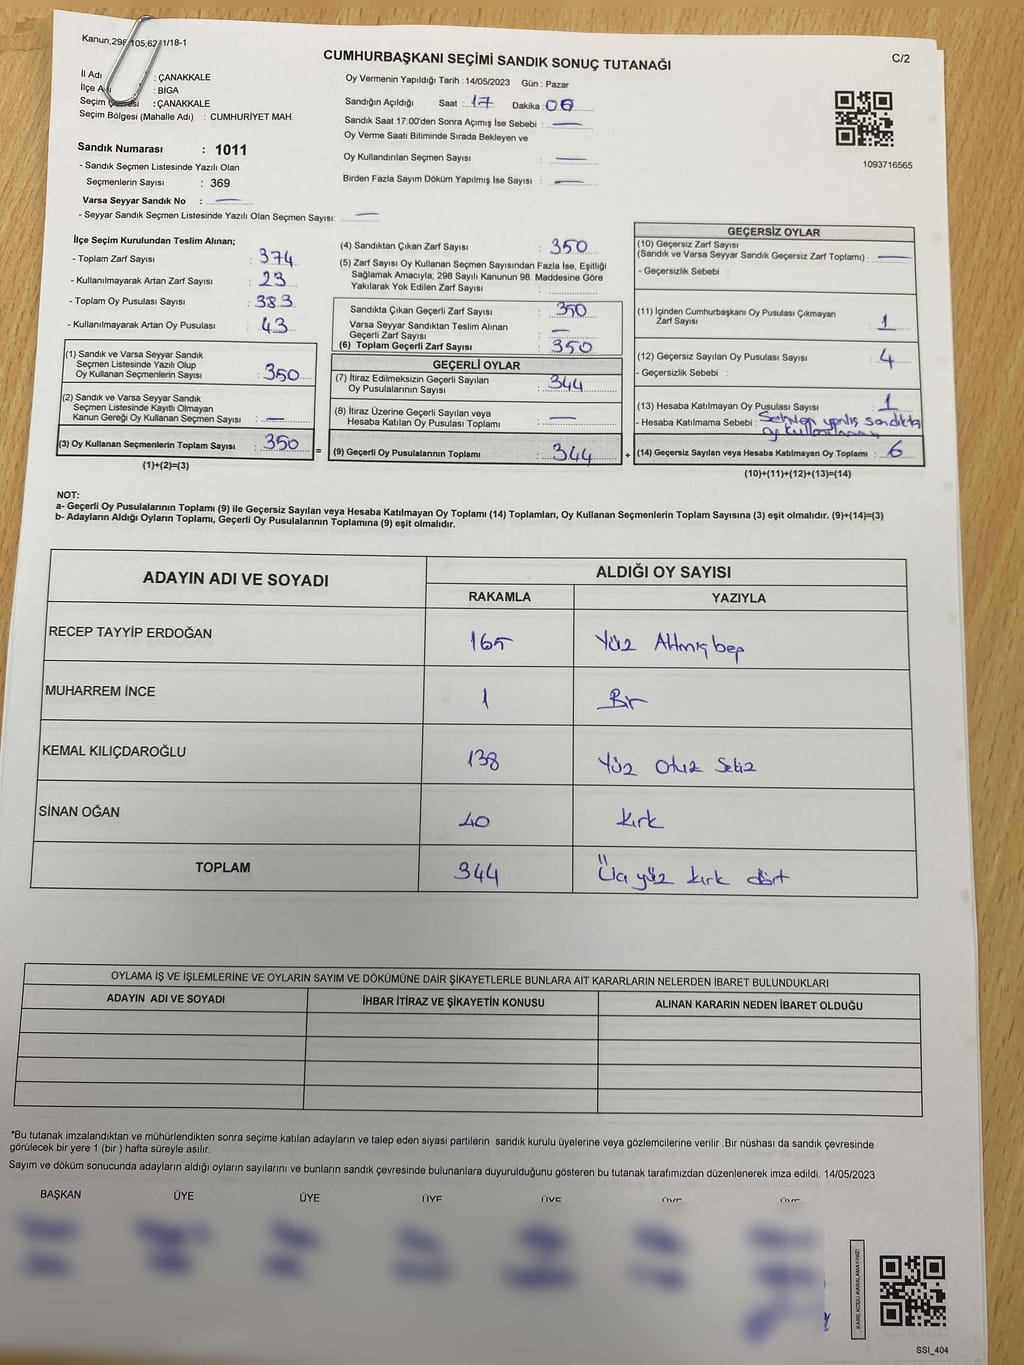 Kanun;298,105,62 1/18-1
CUMHURBAŞKANI SEÇİMİ SANDIK SONUÇ TUTANAĞI
C/2
İl Adı : ÇANAKKALE
İlçe A : BİGA
Seçim : ÇANAKKALE
Seçim Bölgesi (Mahalle Adı) : CUMHURİYET MAH.
Oy Vermenin Yapıldığı Tarih : 14/05/2023 Gün : Pazar
Sandığın Açıldığı Saat : 17 Dakika : 00
Sandık Saat 17:00'den Sonra Açımış İse Sebebi : —
Oy Verme Saati Bitiminde Sırada Bekleyen ve
Oy Kullandırılan Seçmen Sayısı : —
Birden Fazla Sayım Döküm Yapılmış İse Sayısı : —
1093716565
Sandık Numarası : 1011
- Sandık Seçmen Listesinde Yazılı Olan
Seçmenlerin Sayısı : 369
Varsa Seyyar Sandık No : —
- Seyyar Sandık Seçmen Listesinde Yazılı Olan Seçmen Sayısı: —
İlçe Seçim Kurulundan Teslim Alınan;
- Toplam Zarf Sayısı : 374
- Kullanılmayarak Artan Zarf Sayısı : 23
- Toplam Oy Pusulası Sayısı : 383
- Kullanılmayarak Artan Oy Pusulası : 43
(1) Sandık ve Varsa Seyyar Sandık
Seçmen Listesinde Yazılı Olup
Oy Kullanan Seçmenlerin Sayısı : 350
(2) Sandık ve Varsa Seyyar Sandık
Seçmen Listesinde Kayıtlı Olmayan
Kanun Gereği Oy Kullanan Seçmen Sayısı : —
(3) Oy Kullanan Seçmenlerin Toplam Sayısı : 350
(1)+(2)=(3)
(4) Sandıktan Çıkan Zarf Sayısı : 350
(5) Zarf Sayısı Oy Kullanan Seçmen Sayısından Fazla İse, Eşitliği
Sağlamak Amacıyla; 298 Sayılı Kanunun 98. Maddesine Göre
Yakılarak Yok Edilen Zarf Sayısı :
Sandıkta Çıkan Geçerli Zarf Sayısı : 350
Varsa Seyyar Sandıktan Teslim Alınan
Geçerli Zarf Sayısı : —
(6) Toplam Geçerli Zarf Sayısı : 350
GEÇERLİ OYLAR
(7) İtiraz Edilmeksizin Geçerli Sayılan
Oy Pusulalarının Sayısı : 344
(8) İtiraz Üzerine Geçerli Sayılan veya
Hesaba Katılan Oy Pusulası Toplamı : —
= (9) Geçerli Oy Pusulalarının Toplamı : 344 +
GEÇERSİZ OYLAR
(10) Geçersiz Zarf Sayısı
(Sandık ve Varsa Seyyar Sandık Geçersiz Zarf Toplamı) : —
- Geçersizlik Sebebi :
(11) İçinden Cumhurbaşkanı Oy Pusulası Çıkmayan
Zarf Sayısı : 1
(12) Geçersiz Sayılan Oy Pusulası Sayısı : 4
- Geçersizlik Sebebi :
(13) Hesaba Katılmayan Oy Pusulası Sayısı : 1
- Hesaba Katılmama Sebebi : yanlış sandıkta
(14) Geçersiz Sayılan veya Hesaba Katılmayan Oy Toplamı : 6
(10)+(11)+(12)+(13)=(14)
NOT:
a- Geçerli Oy Pusulalarının Toplamı (9) ile Geçersiz Sayılan veya Hesaba Katılmayan Oy Toplamı (14) Toplamları, Oy Kullanan Seçmenlerin Toplam Sayısına (3) eşit olmalıdır. (9)+(14)=(3)
b- Adayların Aldığı Oyların Toplamı, Geçerli Oy Pusulalarının Toplamına (9) eşit olmalıdır.
ADAYIN ADI VE SOYADI ALDIĞI OY SAYISI
RAKAMLA YAZIYLA
RECEP TAYYİP ERDOĞAN 165 Yüz Altmış beş
MUHARREM İNCE 1 Bir
KEMAL KILIÇDAROĞLU 138 Yüz Otuz Sekiz
SİNAN OĞAN 40 Kırk
TOPLAM 344 Üç yüz kırk dört
OYLAMA İŞ VE İŞLEMLERİNE VE OYLARIN SAYIM VE DÖKÜMÜNE DAİR ŞİKAYETLERLE BUNLARA AİT KARARLARIN NELERDEN İBARET BULUNDUKLARI
ADAYIN ADI VE SOYADI İHBAR İTİRAZ VE ŞİKAYETİN KONUSU ALINAN KARARIN NEDEN İBARET OLDUĞU
*Bu tutanak imzalandıktan ve mühürlendikten sonra seçime katılan adayların ve talep eden siyasi partilerin sandık kurulu üyelerine veya gözlemcilerine verilir .Bir nüshası da sandık çevresinde
görülecek bir yere 1 (bir ) hafta süreyle asılır.
Sayım ve döküm sonucunda adayların aldığı oyların sayılarını ve bunların sandık çevresinde bulunanlara duyurulduğunu gösteren bu tutanak tarafımızdan düzenlenerek imza edildi. 14/05/2023
BAŞKAN ÜYE ÜYE ÜYE ÜYE ÜYE ÜYE
KARE KODU KARALAMAYINIZ!
SSI_404